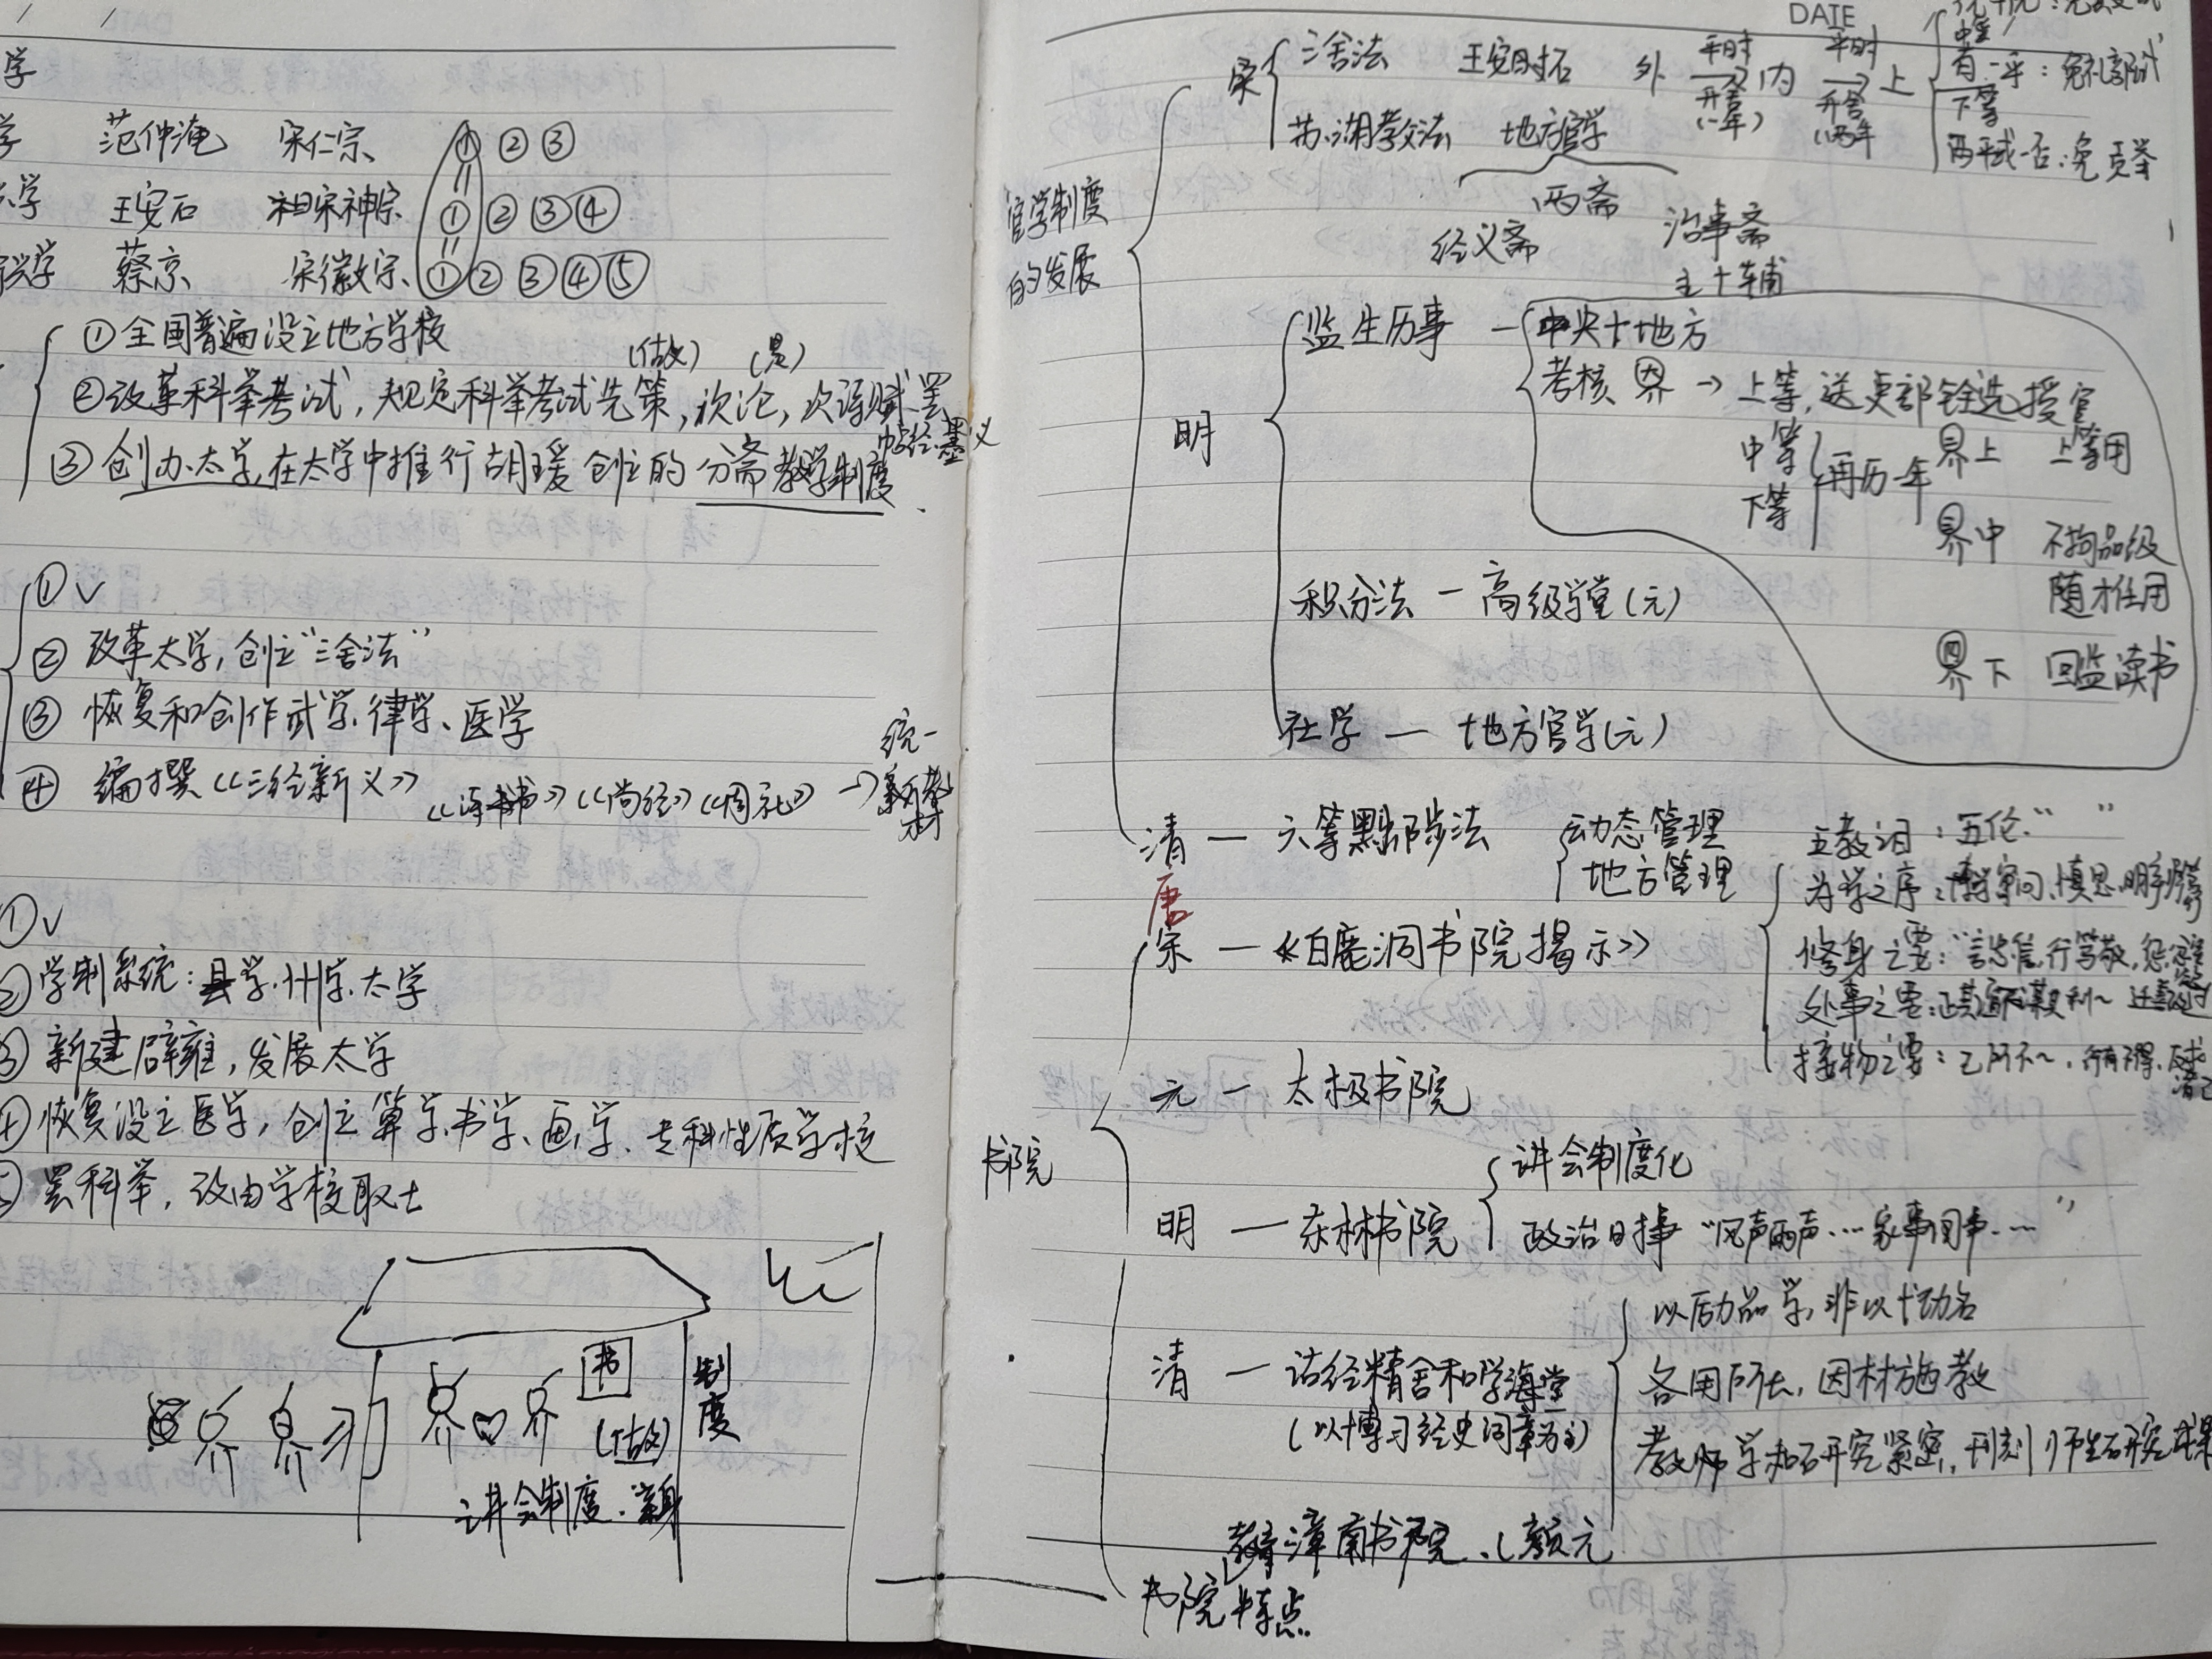 学
学 范仲淹 宋仁宗 ① ② ③
学 王安石 宋神宗 ① ② ③ ④
兴学 蔡京 宋徽宗 ① ② ③ ④ ⑤
① 全国普遍设立地方学校
(做) (是)
② 改革科举考试，规定科举考试先策，次论，次诗赋，罢
帖经墨义
③ 创办太学，在太学中推行胡瑗创立的分斋教学制度.
① ∨
② 改革太学，创立“三舍法”
③ 恢复和创作武学、律学、医学
④ 编撰《三经新义》 《诗书》《尚经》《周礼》 → 统一
教材
① ∨
② 学制系统：县学.州学.太学
③ 新建辟雍，发展太学
④ 恢复设立医学，创立算学、书学、画学、专科性质学校
⑤ 罢科举，改由学校取士
书
(做)
制度
讲会制度.
DATE
官学制度
的发展
宋
三舍法 王安石 外 平时 升舍 (一年) → 内 平时 升舍 两年 → 上
中等
有一平：免礼部试
下等
两平或一否：免贡举
苏湖教法 地方官学
两斋
经义斋 治事斋
主+辅
明
监生历事 — 中央+地方
考核 → 上等，送吏部铨选授官
中等
下等
再历一年
上 上等用
中 不拘品级
随才任用
下 回监读书
积分法 — 高级学堂(元)
社学 — 地方官学(元)
清 — 六等黜陟法
动态管理
地方管理
唐
书院
宋 — 《白鹿洞书院揭示》
五教之目：五伦.“ ”
为学之序：博学审问、慎思.明辨笃行
修身之要：“言忠信,行笃敬,惩忿窒欲 迁善改过
处事之要：正其谊不谋其利～
接物之要：己所不～，行有不得,反求诸己
元 — 太极书院
明 — 东林书院
讲会制度化
政治时事 “风声雨声…家事国事…”
清 — 诂经精舍和学海堂
(以博习经史词章为主)
以励品学,非以弋功名
各用所长，因材施教
教师学和研究紧密，刊刻师生研究成果
漳南书院.(颜元
书院特点